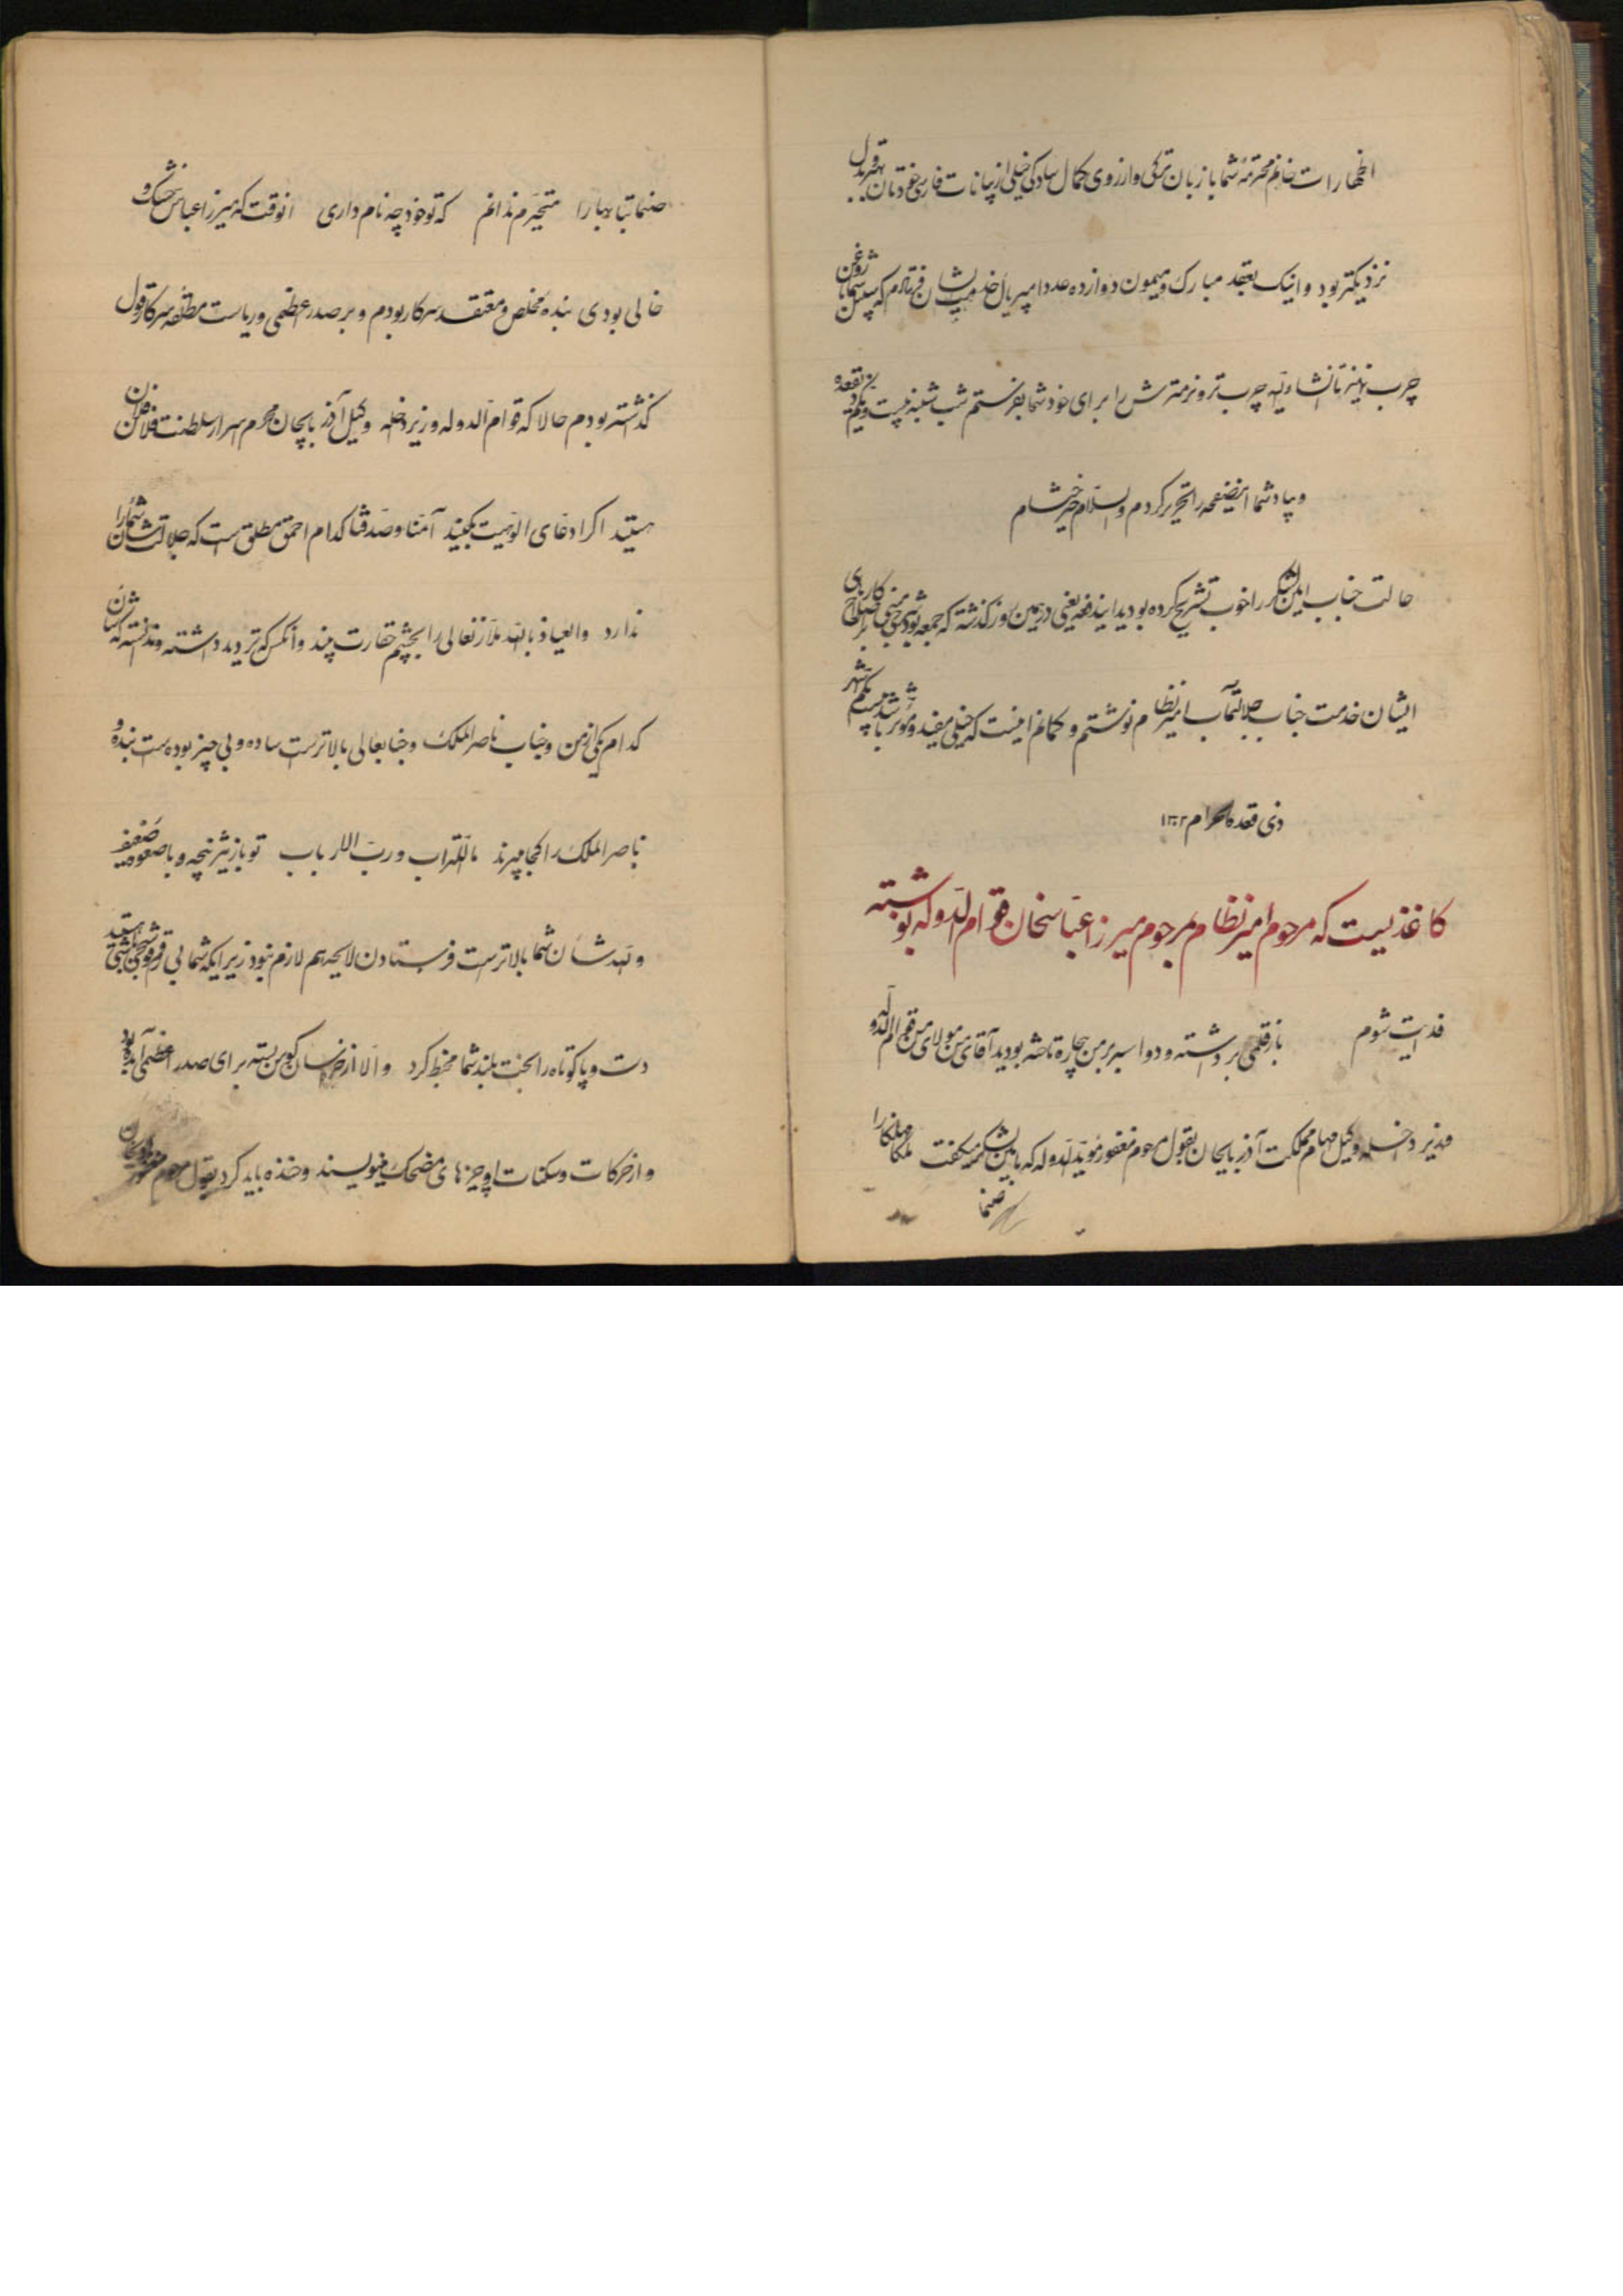 اظهارات خانم محترمه شما با زبان ترکی و از روی کمال سادگی خیلی از بیانات فارسی خودتان بهتر بقبول
نزدیکتر بود و اینک بعقد مبارک و میمون دوازده عدد امپریال خدمت ایشان فرستادم که سبیل شما را روغن
چرب نمایند تا انشاءالله چرب تر و نرمترش را برای خود شما بفرستم شب شنبه بیست و یکم ذیقعده
و بیاد شما این صفحه را تحریر کردم والسلام خیر ختام
حالت جناب امین لشکر را خوب تشریح کرده بودید ایندفعه یعنی در همین روز گذشته که جمعه بود شرحی مبنی بر اصلاح کار
ایشان خدمت جناب جلالتمآب امیر نظام نوشتم و گمانم اینست که خیلی مفید و مؤثر باشد بیستم شهر
ذی قعدة الحرام ۱۳۰۲
کاغذیست که مرحوم امیر نظام بمرحوم میرزا عباسخان قوام الدوله نوشته
فدایت شوم باز قلمی برداشته و دو اسبه بر من بیچاره تاخته بودید آقای من مولای من قوام الدوله
وزیر دخله وکیل مهام مملکت آذربایجان بقول مرحوم مغفور مؤید الدوله که بامین لشکر میگفت ملکا مها نگارا
صنما
صنما بتا بهارا متحیرم ندانم که تو خود چه نام داری آنوقت که میرزا عباس خشک و
خالی بودی بنده مخلص و معتقد سرکار بودم و بر صدر عظمی و ریاست مطلقه سرکار قول
گذاشته بودم حالا که قوام الدوله وزیر دخله وکیل آذربایجان محرم اسرار سلطنت فلان فلان
هستید اگر ادعای الوهیت بکنید آمنا و صدقنا کدام احمق مطلق است که جلالت شأن شما را
ندارد و العیاذ بالله ملازمان عالی را بچشم حقارت بیند و آنکس که تردید داشته و ندانسته که شأن
کدام یکی از من و جناب ناصرالملک و جنابعالی بالاتر است ساده و بی چیز بوده است بنده و
ناصرالملک را کجا میبرند ما للتراب و رب الارباب تو باز تیز پنجه و ما صعوه ضعیف
والله شأن شما بالاترست فرستادن لایحه هم لازم نبود زیرا که شما بی
دست و پا کوتاه را بخت بلند شما مخبط کرد و الا از خراسان کمر بسته برای صدر اعظمی آمده بود
و از حرکات و سکنات او چیزهای مضحک مینویسند و خنده باید کرد بقول مرحوم